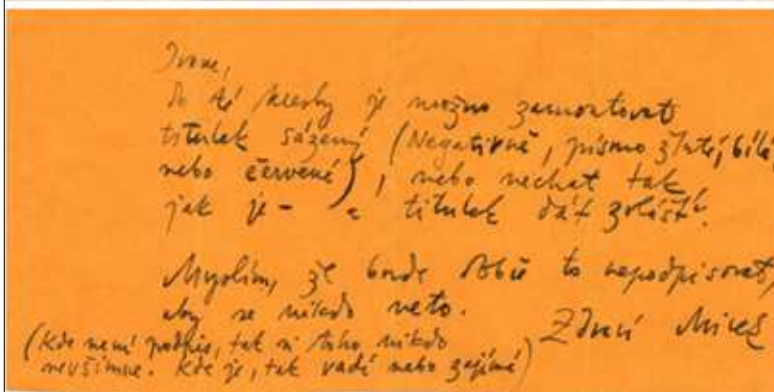 Ivane,
do té kresby je možno zamontovat
titulek sázený (Negativně, písmo žluté, bílé,
nebo červené), nebo nechat tak
jak je - a titulek dát zvlášť.
Myslím, že bude lépe to nepodpisovat,
aby se nikdo
Zdraví Mirek
(Kde není podpis, tak si toho nikdo
nevšimne. Kde je, tak vadí nebo zajímá)